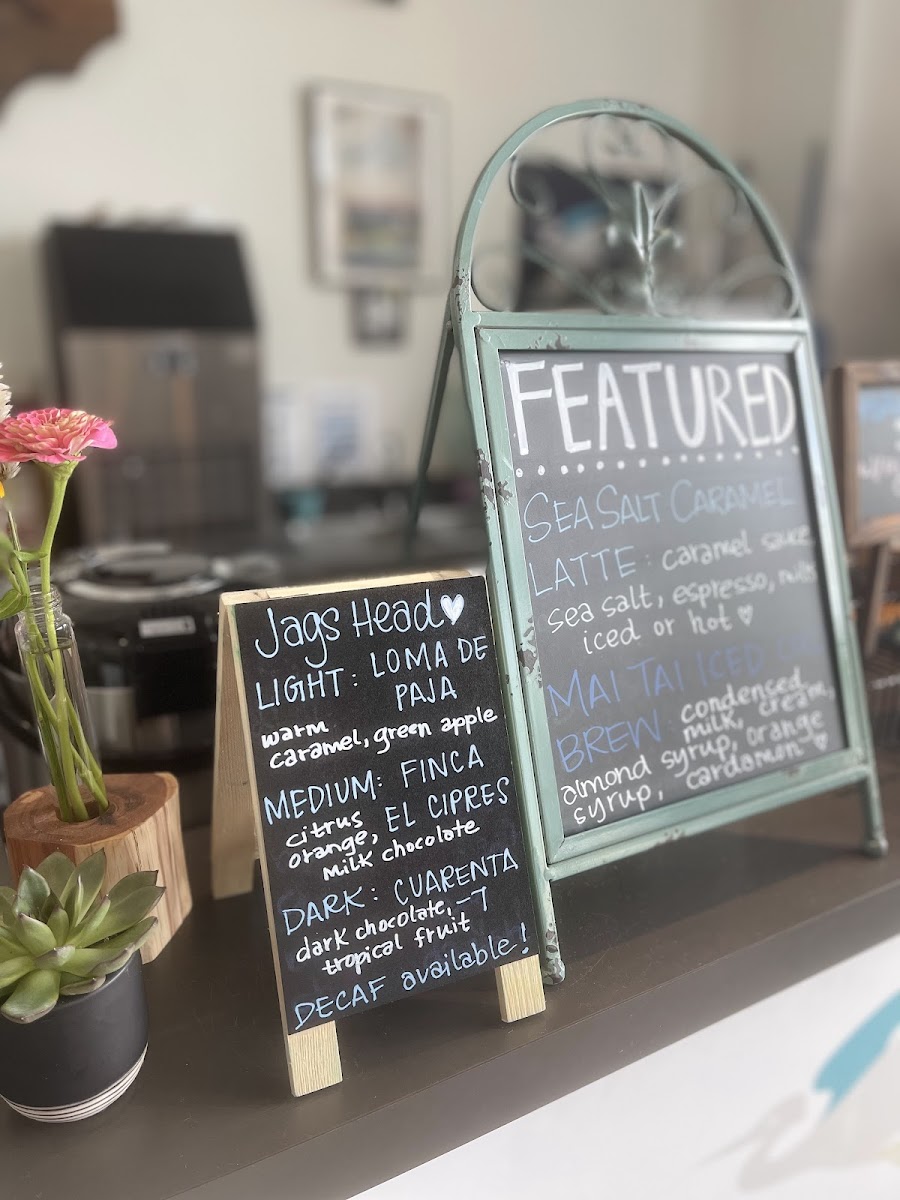 Jags Head
LIGHT: LOMA DE
PAJA
warm
caramel, green apple
MEDIUM: FINCA
EL CIPRES
citrus
orange,
milk chocolate
DARK: CUARENTA
-7
dark chocolate,
tropical fruit
DECAF available!
FEATURED
SEA SALT CARAMEL
LATTE: caramel sauce
sea salt, espresso, milk
iced or hot
MAI TAI ICED
BREW: condensed
milk, cream,
almond syrup, orange
syrup, cardamon